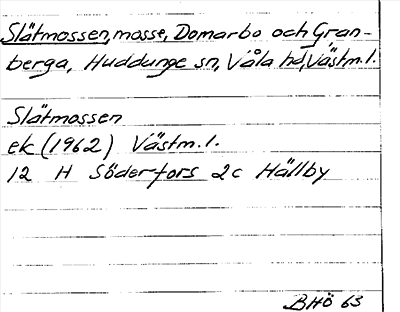 Slätmossen, mosse, Domarbo och Gran-
berga, Huddunge sn, Våla hd, Västm.l.
Slätmossen
ek (1962) Västm.l.
12 H Söderfors 2c Hällby
BHÖ 63